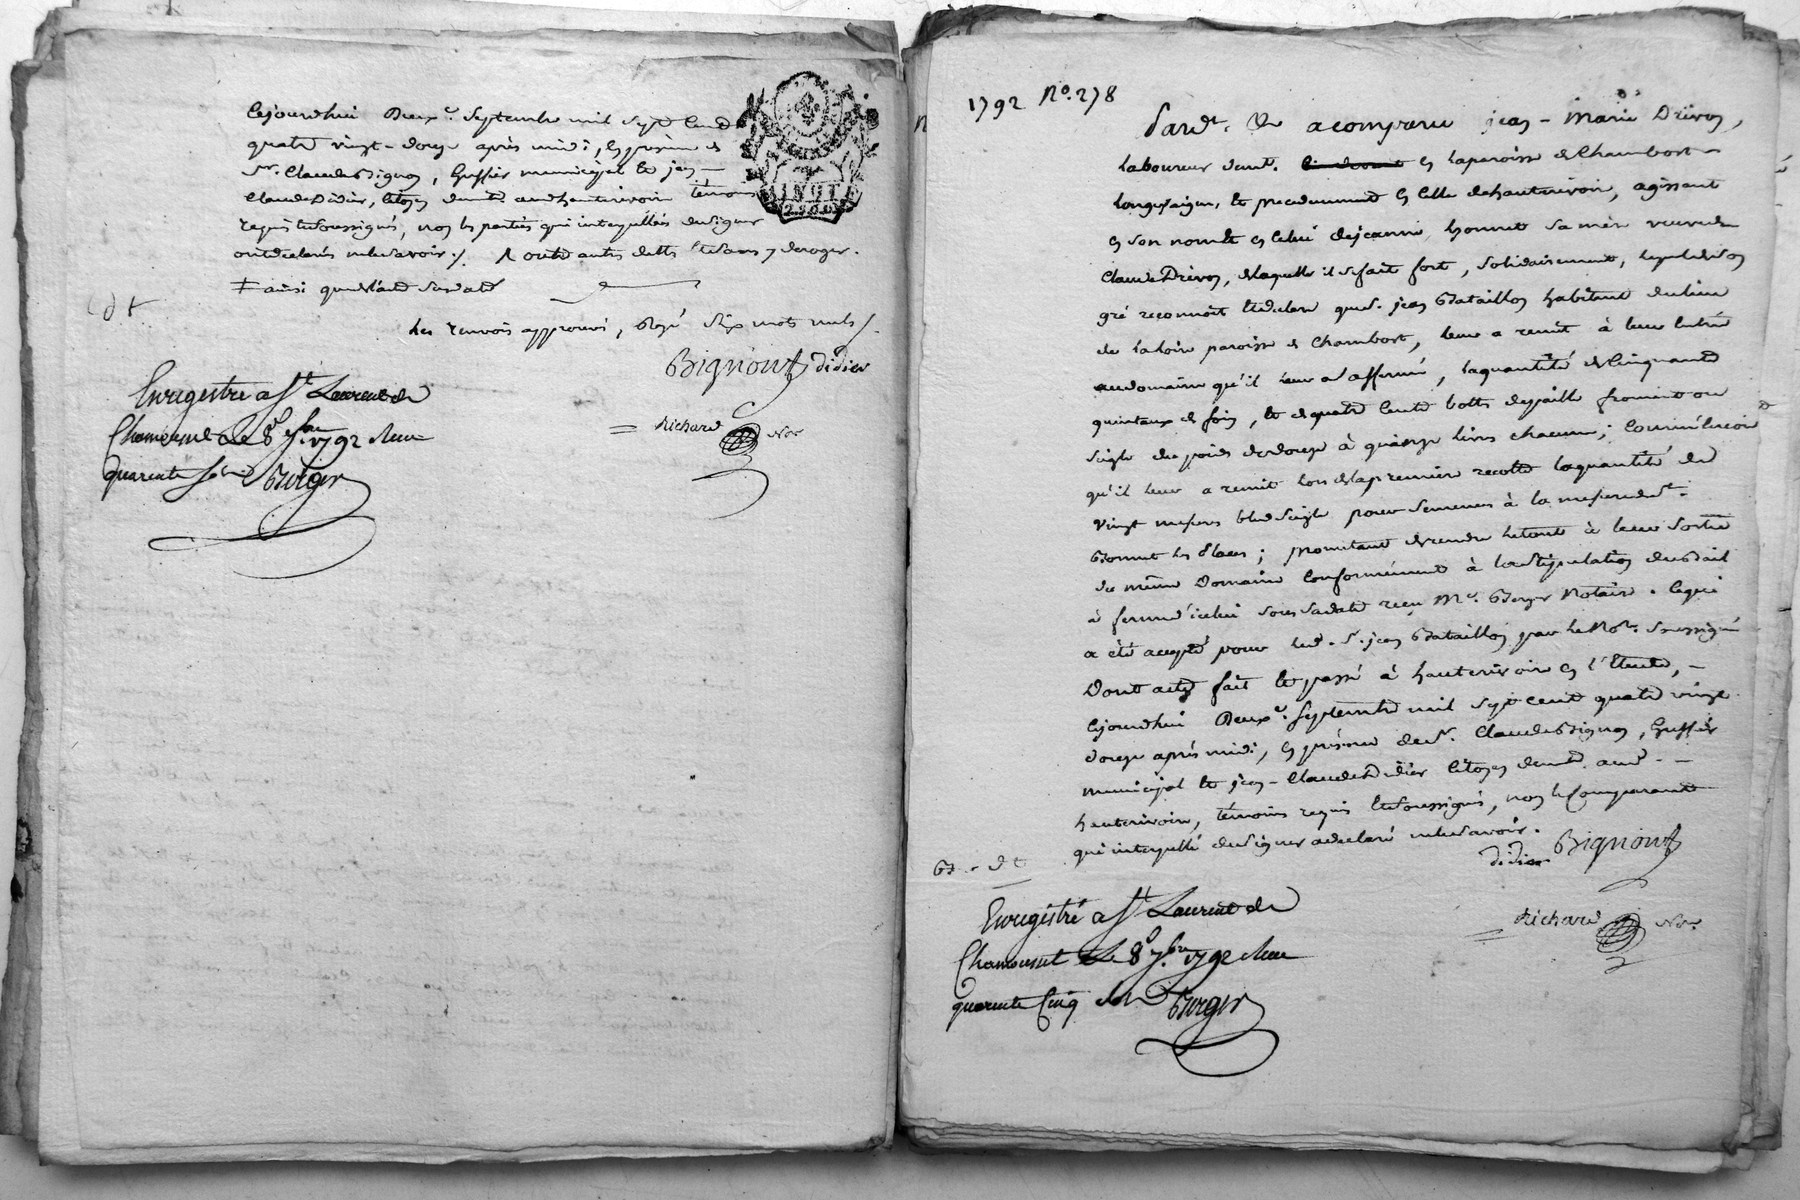 Cejourdhui Deux.e Septembre mil Sept Cend
quatre vingt-douze après midi, En présence de
Sr. Claude Bignon, Greffier municipal et jean
Claude Didier, Citoyen demt. audhauterivoir témoins
requis Et Soussignés, non les parties qui interpellées de Signer
ont déclarés ne le Savoir ./. 
‡ ainsi que
Les renvois approuvés, Rayé Six mots nuls /.
Bignon didier
Richard Nre
Enregistré a St Laurent de
Chamousset Le 8 7bre 1792 Reçu
quarente sols Berger
1792 N°. 278
Pardt. a comparu jean-Marie Drivon,
laboureur demt. en la paroisse de Chambost
longesaigne, et precedemment en Celle de hauterivoir, agissant
En son nom et en Celui de jeanne sa mère veuve de
Claude Drivon, de laquelle il Se fait fort, Solidairement, lequel de Son
gré reconnoit Et declare que S. jean Bataillon habitant du lieu
de paroisse de Chambost, leur a remit à leur Entrée
au domaine qu'il leur a affermé, la quantité de Cinquante
quintaux de foin, et de quatre Cents bottes de paille froment ou
Seigle du poids de douze à quinze livres chacune; 
qu'il leur a remit lors de la premiere recolte la quantité de
Vingt mesures bled Seigle pour Semences à la mesure de St.
Bonnet les Places; promettant de rendre le tout à leur Sortie
du même Domaine Conformément à la Stipulation du Bail
à ferme d'icelui Sous Sa date reçu Me. Berger Notaire. Ce qui
a été accepté pour led. Sr. jean Bataillon par le Nore. Soussigné
Dont acte fait et passé à hauterivoir En l'Etude,
Cejourdhui Deuxe. Septembre mil Sept cent quatre vingt
douze après midi, En présence de Sr. Claude Bignon, Greffier
municipal et jean-Claude Didier Citoyen demt. aud.
hauterivoir, témoins requis Et Soussignés, non le Comparant
qui interpellé de Signer a declaré ne le Savoir.
didier Bignon
Richard Nre.
Enregistré a St Laurent de
Chamousset Le 8 7bre 1792 Reçu
quarente Cinq Sols Berger